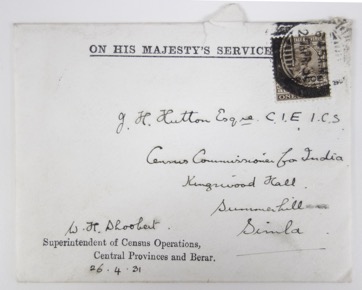 ON HIS MAJESTY'S SERVICE
J. H. Hutton Esqre C.I.E I.C.S
Census Commissioner for India
Kingswood Hall.
Summerhill
Simla.
W. H. Shoobert.
Superintendent of Census Operations,
Central Provinces and Berar.
26.4.31